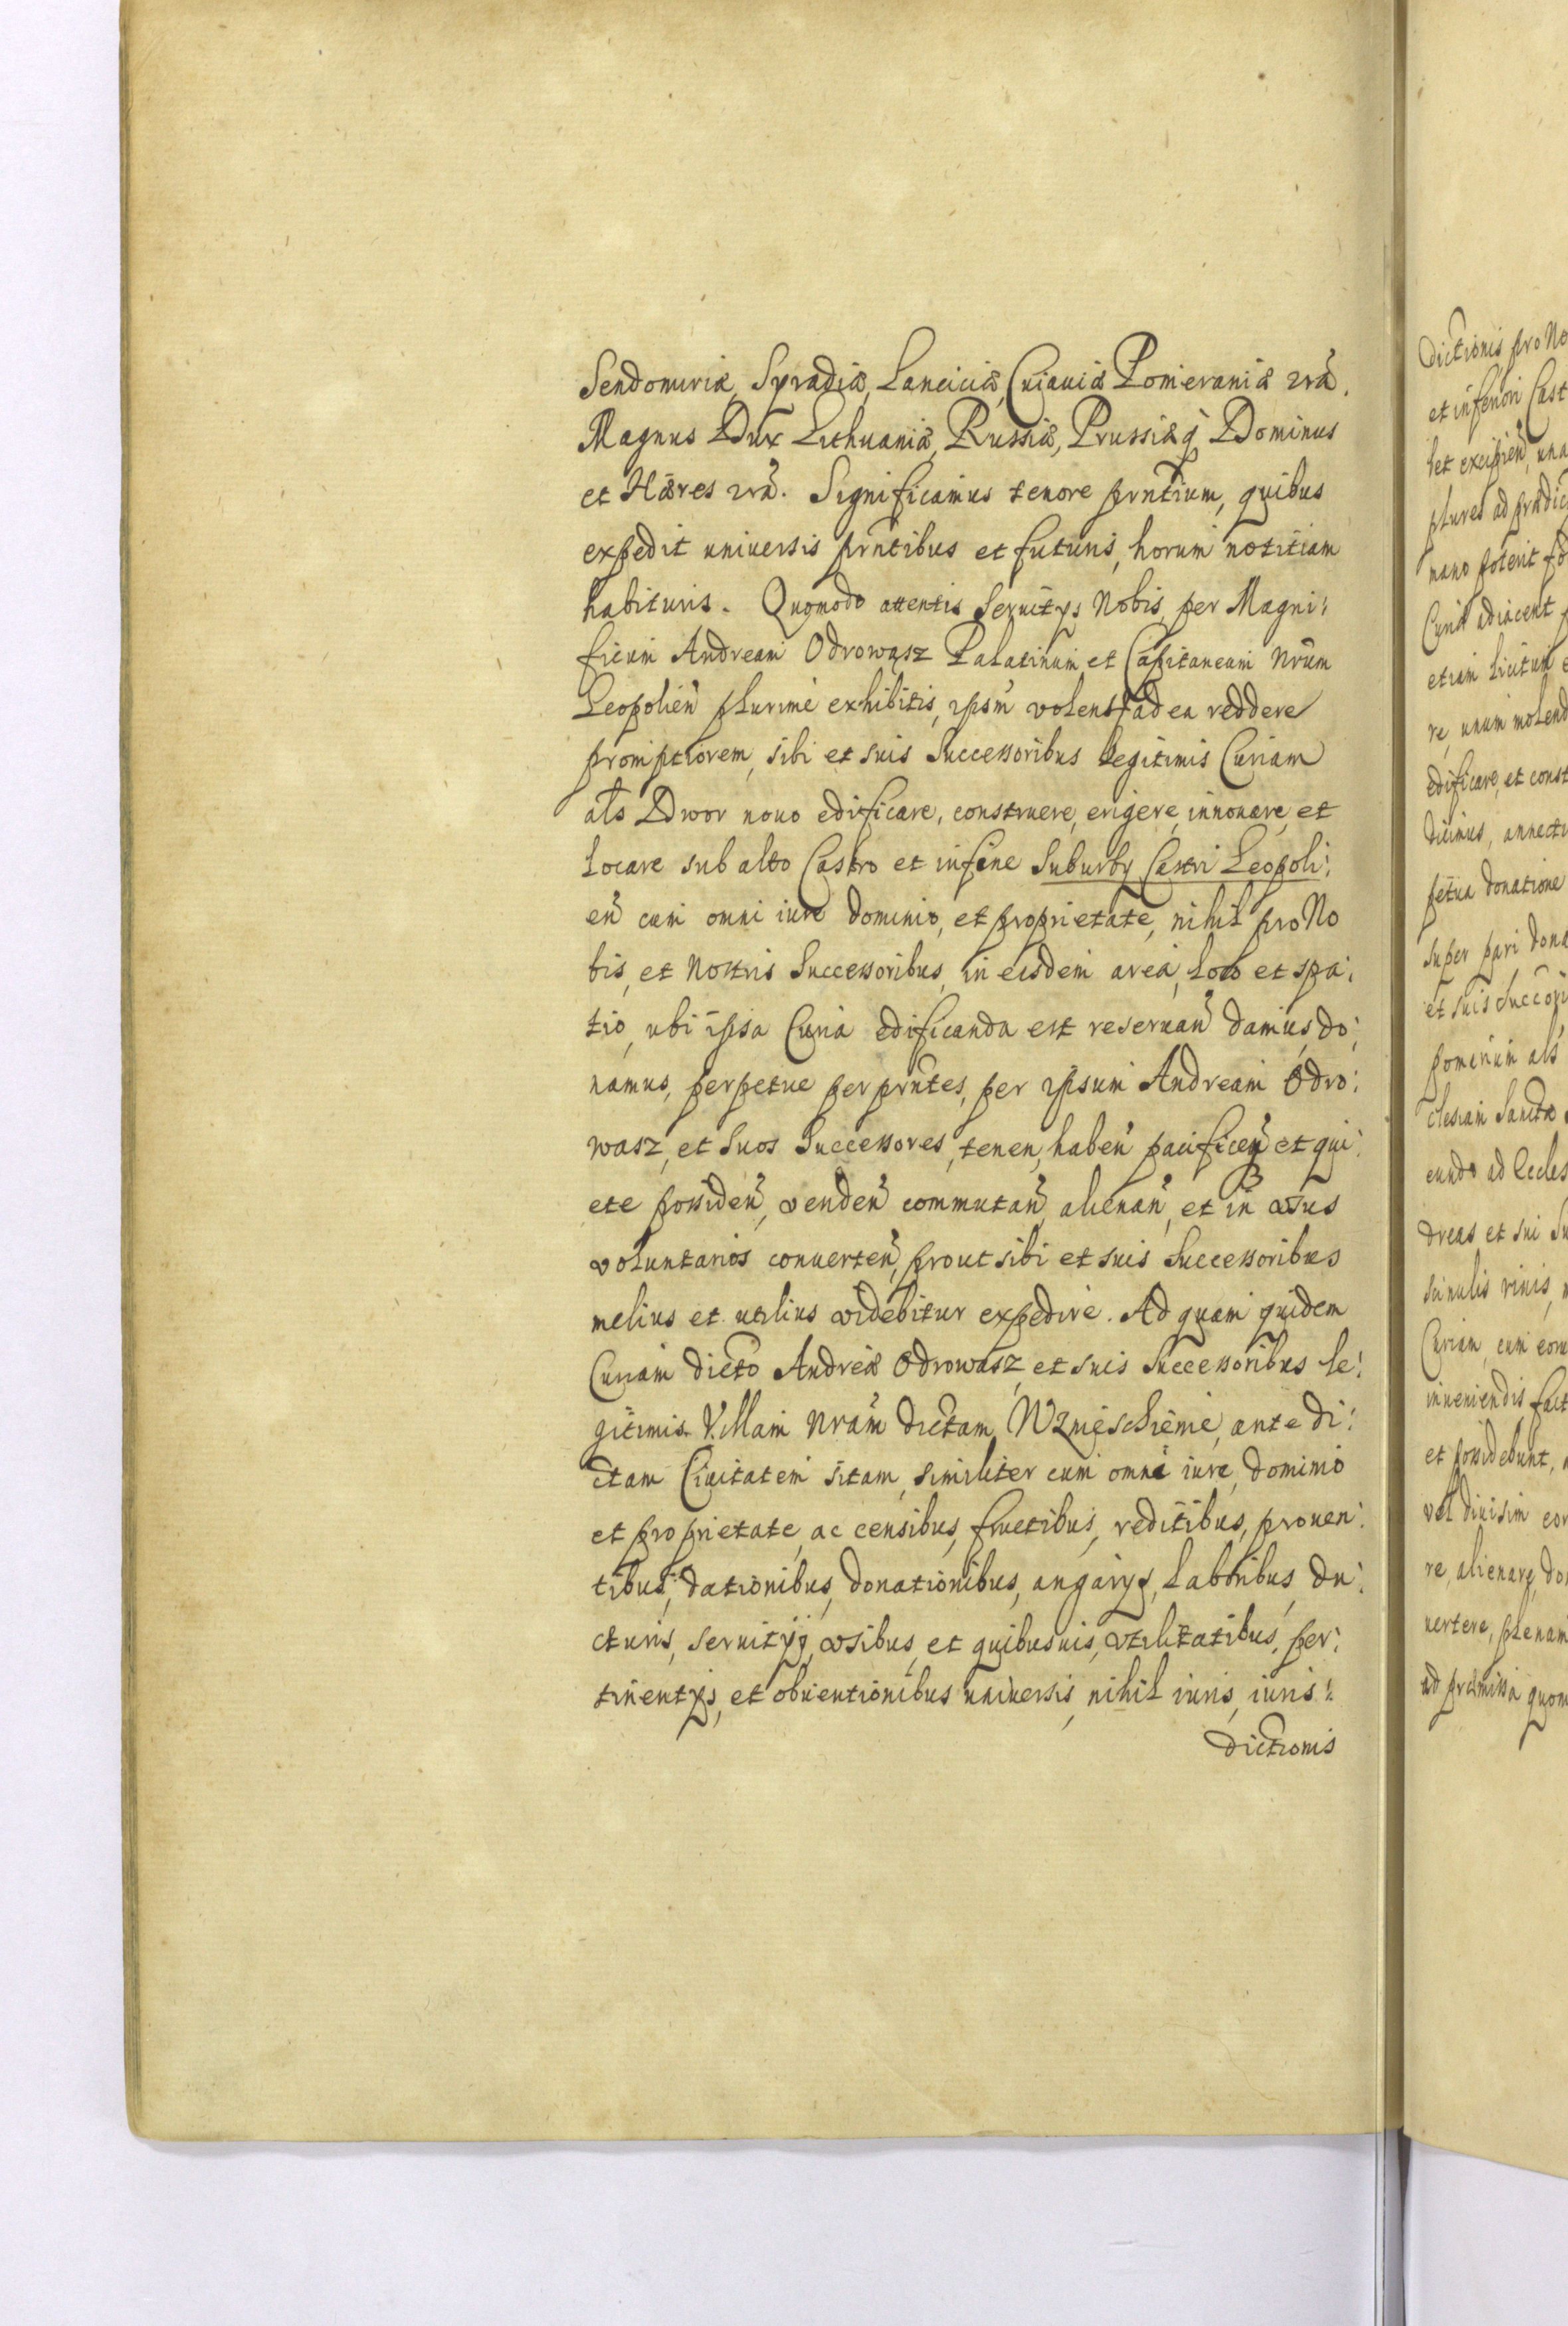 Sendomiriæ, Syradiæ, Lanciciæ, Cuiauiæ Pomeraniæ zrã.
Magnus Dux Lithuaniæ, Russiæ, Prussiæq, Dominus
et Hæres zrã. Significamus tenore prntium, quibus
expedit uniuersis prñtibus et futuris, horum notitiam
habituris. Quomodo attentis Seruitys Nobis per Magni:
ficum Andream Odrowąsz Palatinum et Capitaneum Nrum
Leopolieñ plurime exhibitis, ipsm̃ volens ad ea reddere
promptiorem, sibi et suis Successoribus Legitimis Curiam
als Dwor nouo edificare, construere, erigere, innouare, et
Locare sub alto Castro et in fine Suburby Castri Leopoli:
eñ cum omni iure dominio, et proprietate, nihil pro No
bis, et Nostris Successoribus, in eisdem area, loco et spa:
tio, ubi ipsa Curia edificanda est reseruañ damus, do:
namus, perpetue per prñtes, per ipsum Andream Odro:
wasz, et Suos Successores, tenen, habeñ pacificeq et qui:
ete possideñ, vendeñ commutañ, alienañ, et in vsus
voluntarios conuerteñ, prout sibi et suis Successoribus
melius et utilius videbitur expedire. Ad quam quidem
Curiam dicto Andreæ Odrowasz, et suis Successoribus le:
gitimis Villam Nram̃ dictam Wznieschienie, ante di:
ctam Ciuitatem sitam, similiter cum omni iure, dominio
et proprietate, ac censibus, fructibus, reditibus, prouen:
tibus, dationibus, donationibus, angarys, Laboribus, du:
cturis, seruityj, vsibus, et quibusuis, vtilitatibus, per:
tinentys, et obuentionibus uniuersis, nihil iuris, iuris:
dictionis
Dictionis pro No
et inferiori Cast
let excipieñ, una
plures ad prædic
mano poterit fo
Curiæ adiacent
etiam licitum
re, unum molend
edificare, et const
dicimus, annecti
petua donatione
super pari dona
et suis Succors
pomerium als
clesiam Sanctæ
eundo ad Eccles
dreas et sui Su
simulis riuis,
Curiam, cum eoru
inueniendis fact
et possidebunt,
vel diuisim
re, alienare, do
uertere, plenam
ad præmissa quom